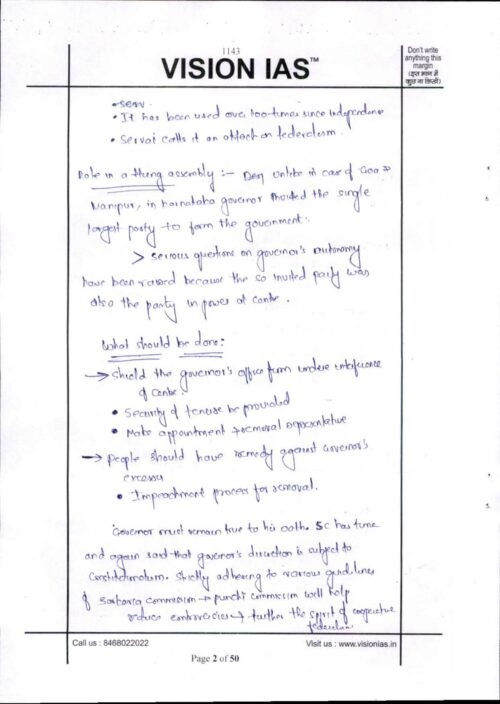 1143
VISION IAS™
Don't write
anything this
margin
(इस भाग में
कुछ ना लिखें)
• It has been used over 100-times since independence
• calls it an attack on federalism.
Role in a Hung assembly :- Unlike in case of Goa &
Manipur, in Karnataka governor invited the single
largest party to form the government.
> serious questions on governor's autonomy
have been raised because the so invited party was
also the party in power at centre.
What should be done:
→ Shield the governor's office from undere interference
of centre.
• Security of tenure be provided
• Make appointment + removal representative
→ People should have remedy against Governor's
excesses
• Impeachment process for removal.
Governor must remain true to his oath. SC has time
and again said that governor's discretion is subject to
Constitutionalism. Strictly adhering to various guidelines
of commission + Punchi commission will help
reduce controversies + further the spirit of cooperative
federalism.
Call us : 8468022022
Visit us : www.visionias.in
Page 2 of 50